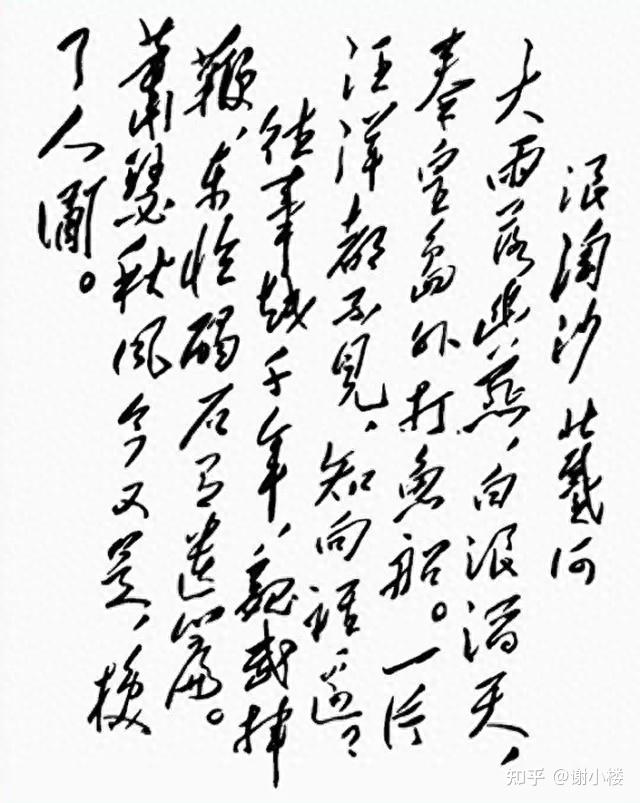 浪淘沙 北戴河
大雨落幽燕,白浪滔天,
秦皇島外打魚船。一片
汪洋都不見,知向誰邊?
往事越千年,魏武揮
鞭,東臨碣石有遺篇。
蕭瑟秋風今又是,換
了人間。
知乎 @谢小楼